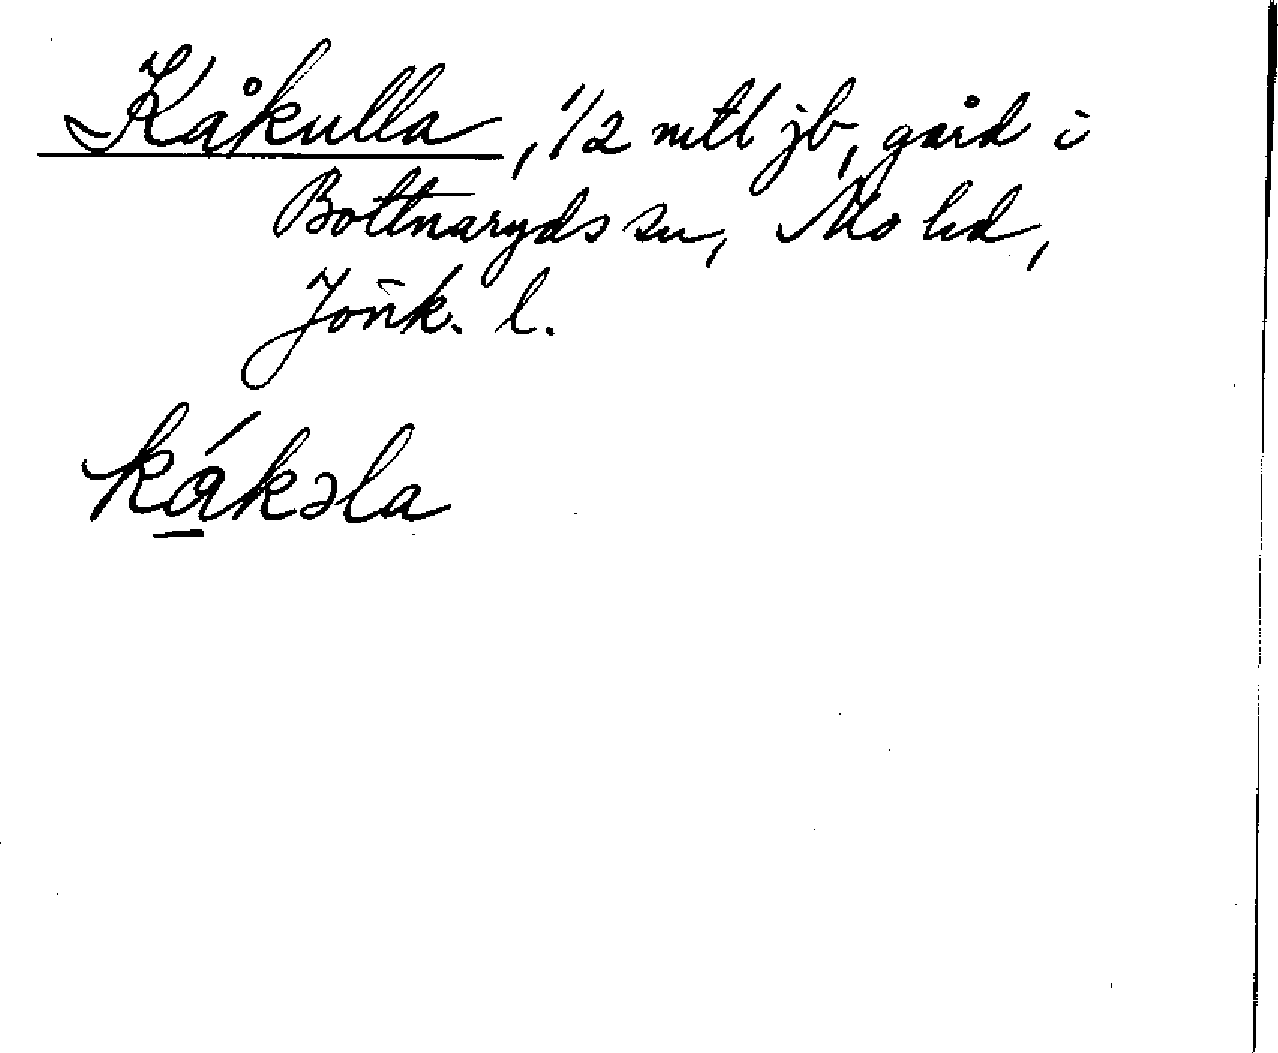 Kåkulla, 1/2 mtl jb, gård i
Bottnaryds sn, Mo hd,
Jönk. l.
kákəla